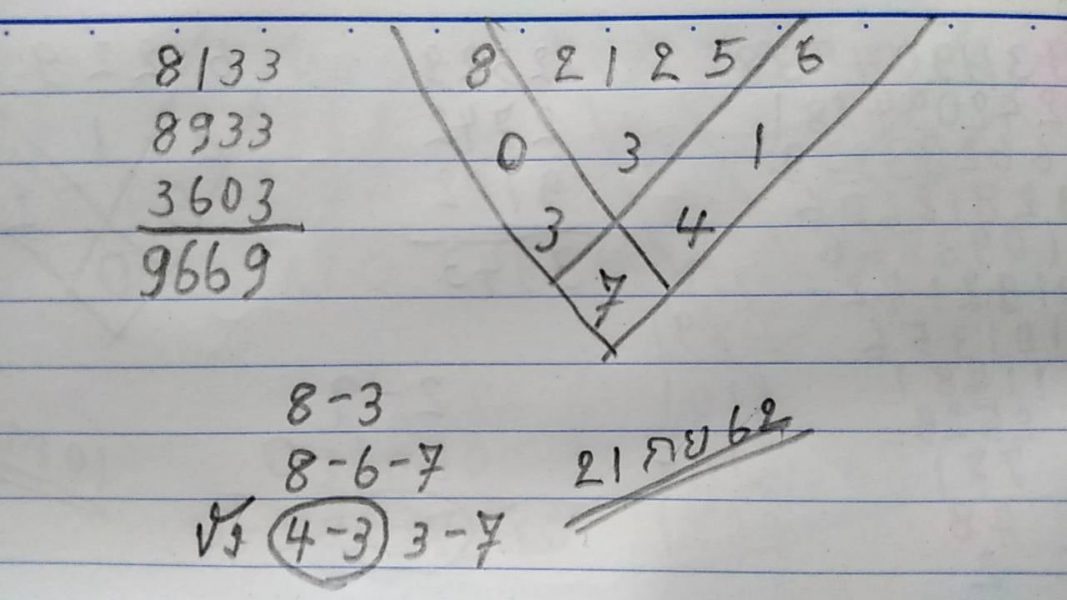 8133
8933
3603
9669
8 2 1 2 5 6
0 3 1
3 4
7
8-3
8-6-7
4-3 3-7
21 กย 62